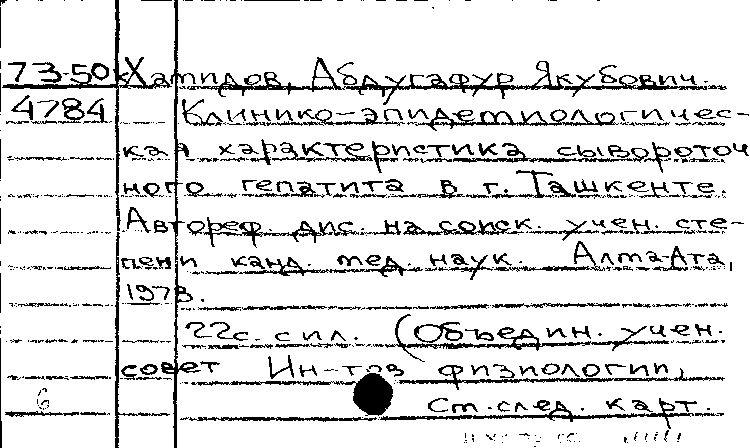 73-50к Хамидов, Абдугафур Якубович.
4784 Клинико-эпидемиологичес-
кая характеристика сывороточ
ного гепатита в г. Ташкенте.
Автореф. дис. на соиск. учен. сте-
пени канд. мед. наук. Алма-Ата,
1973.
22с. с ил. (Объедин. учен.
совет Ин-тов физиологии,
6 См. след. карт.